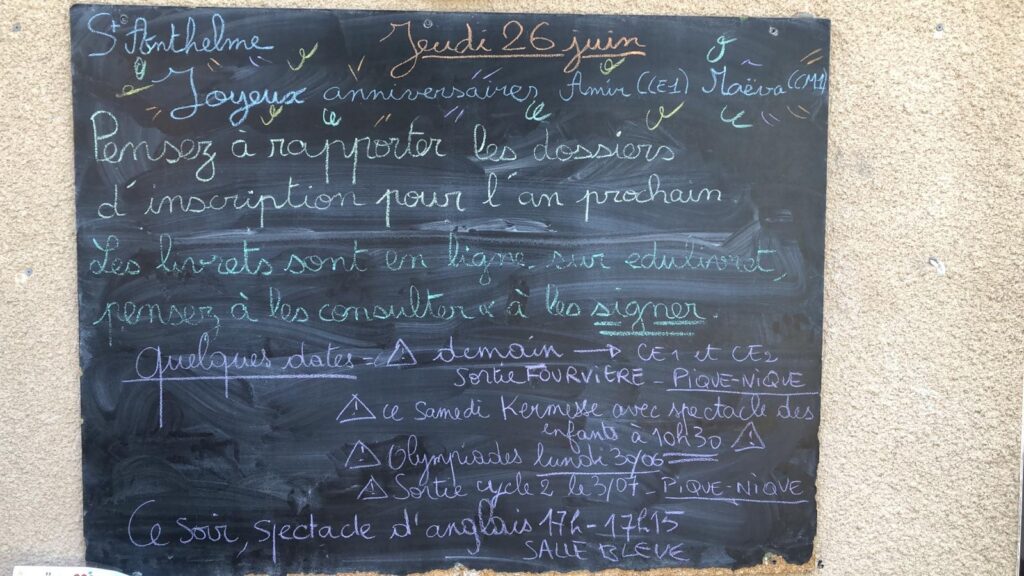 St Anthelme
Jeudi 26 juin
Joyeux anniversaires Amir (CE1) Maëva (CM1)
Pensez à rapporter les dossiers
d'inscription pour l'an prochain.
Les livrets sont en ligne sur edulivret,
pensez à les consulter et à les signer.
Quelques dates - ⚠ demain → CE1 et CE2
Sortie FOURVIÈRE - PIQUE-NIQUE
⚠ ce Samedi Kermesse avec spectacle des
enfants à 10h30 ⚠
⚠ Olympiades lundi 30/06
⚠ Sortie cycle 2 le 3/07 - PIQUE-NIQUE
Ce soir, spectacle d'anglais 17h - 17h15
SALLE BLEUE